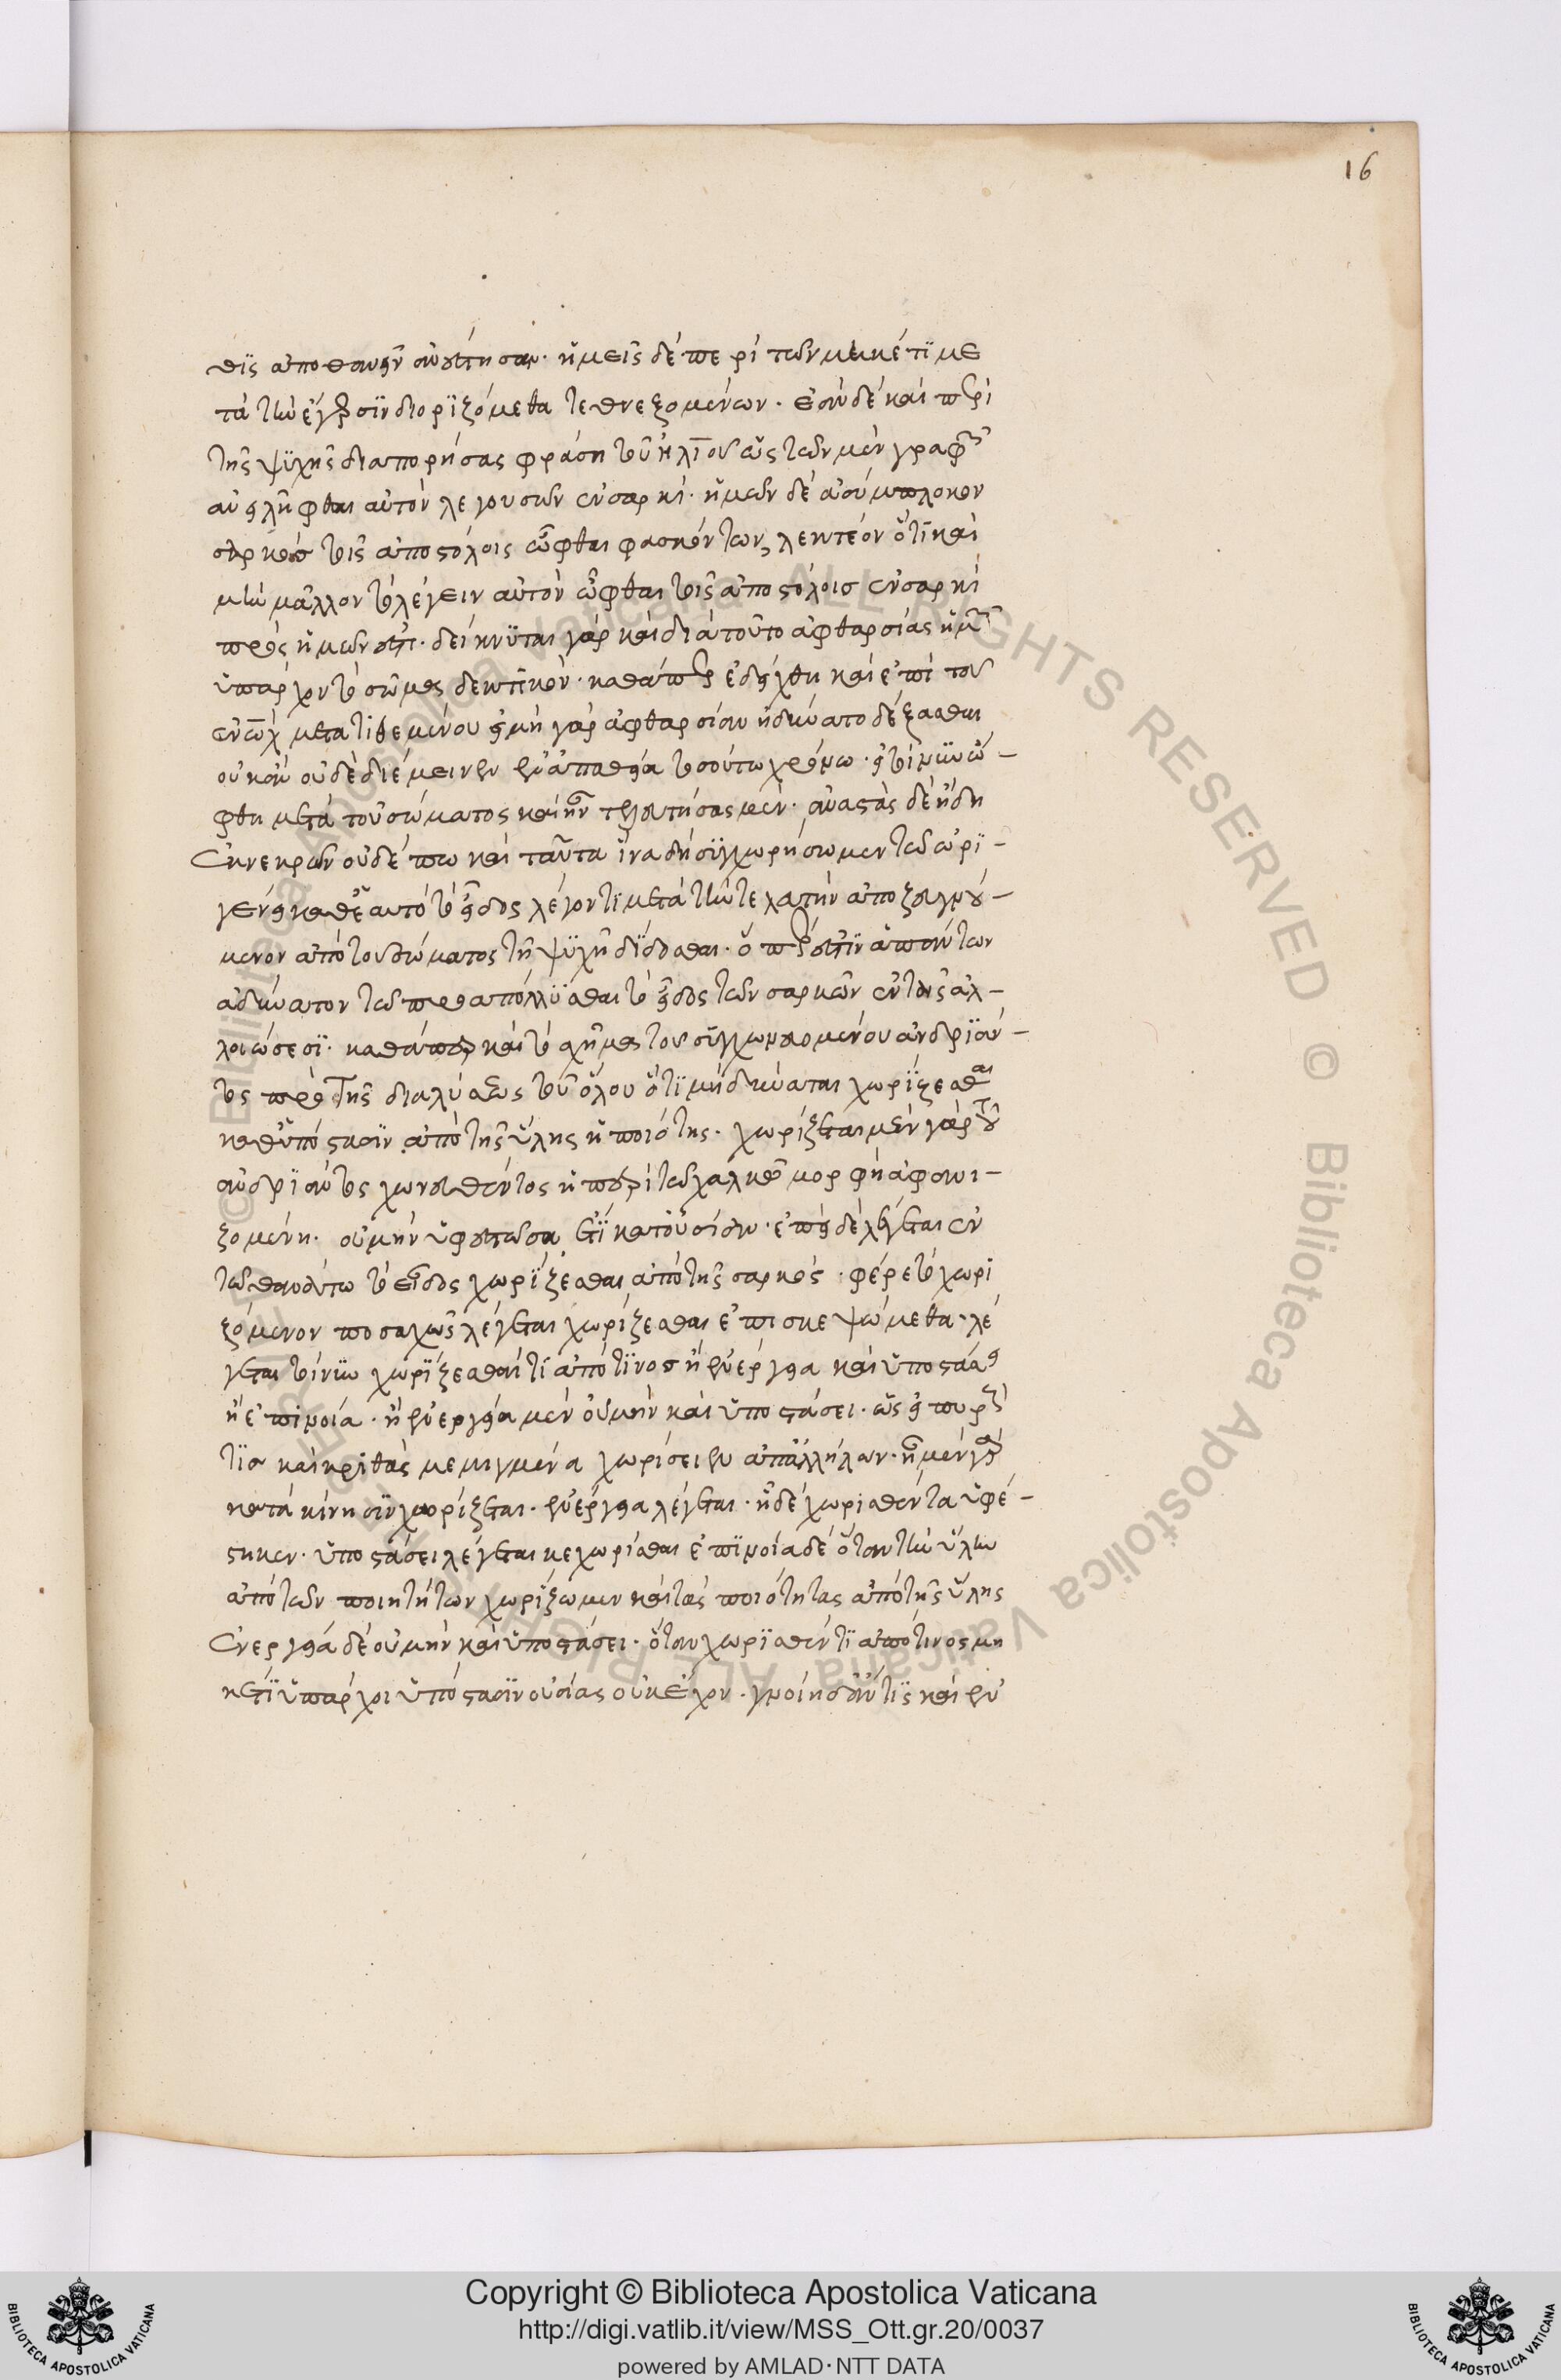 θϊς ἀποθανεῖν ἀνέστησαν· ἡμεῖς δὲ περὶ τῶν μηκέτϊ με
τὰ τὴν ἔγερσϊν διορϊζόμεθα τεθνεξομένων. ἐὰν δὲ καὶ περὶ
τῆς ψϋχῆς διαπορήσας φράση τοῦ ἡλίου ὡς τῶν μὲν γραφῶν
ἀνειλῆφθαι αὐτὸν λεγουσῶν ἐν σαρκί· ἡμῶν δὲ ἀσύμπλοκον
σαρκὸσ τοῖς ἀποστόλοις ὦφθαι φασκόντων, λεκτέον ὅτϊ καὶ
μὴν μᾶλλον τὸ λέγειν αὐτὸν ὦφθαι τοῖς ἀποστόλοισ ἐν σαρκὶ
πρὸς ἡμῶν ἐστι. δείκνϋται γὰρ καὶ διὰ τοῦτο ἀφθαρσίας ἡμῶν
ὑπάρχον τὸ σῶμα δεκτϊκὸν· καθάπερ ἐδείχθη καὶ ἐπὶ τοῦ
ἐνὼχ μετατιθεμένου εἰ μὴ γὰρ ἀφθαρσίαν ἠδύνατο δέξασθαι
οὐκ ἂν οὐδὲ διέμεινεν ἐν ἀπαθεία τοσούτω χρόνω· εἰ τοίνϋν ὤ-
φθη μετὰ τοῦ σώματος καὶ ἦν τελευτήσας μὲν· ἀναστὰς δὲ ἤδη
ἐκ νεκρῶν οὐδέπω καὶ ταῦτα ἵνα δὴ σϋγχωρήσωμεν τῶ ὠρϊ-
γένει καθ' ἑαυτὸ τὸ εἶδος λέγοντϊ μετὰ τὴν τελευτὴν ἀποζευγνύ-
μενον ἀπὸ τοῦ σώματος τῆ ψϋχῆ δΐδοσθαι· ὅπερ ἐστϊν ἁπάντων
ἀδύνατον τῶ προαπόλλϋσθαι τὸ εἶδος τῶν σαρκῶν ἐν ταῖς ἀλ-
λοιώσεσϊ· καθάπερ καὶ τὸ σχῆμα τοῦ σϋγχωνευομένου ἀνδρϊάν-
τος πρὸ τῆς διαλύσεως τοῦ ὅλου ὅτϊ μὴ δύναται χωρΐζεσθαι
καθ' ὑπόστασϊν ἀπὸ τῆς ὕλης ἡ ποιότης. χωρίζεται μὲν γὰρ τοῦ
ἀνδρϊάντος χωνευθέντος ἡ περὶ τῶ χαλκῶ μορφὴ ἀφανι-
ζομένη· οὐ μὴν ὑφεστῶσα ἔτϊ κατ' οὐσίαν· ἐπεὶ δὲ λέγεται ἐν
τῶ θανάτω τὸ εἶδος χωρΐζεσθαι ἀπὸ τῆς σαρκός· φέρε τὸ χωρι
ζόμενον ποσαχῶς λέγεται χωρίζεσθαι ἐπισκεψώμεθα· λέ
γεται τοίνϋν χωρΐζεσθαί τι ἀπό τϊνοσ ἢ ἐνεργεία καὶ ὑποστάσει
ἢ ἐπινοία· ἢ ἐνεργεία μὲν οὐ μὴν καὶ ὑποστάσει· ὡς εἰ πυροὺς
τϊσ καὶ κριθὰς μεμιγμένα χωρίσειεν ἀπ' ἀλλήλων· ἧ μὲν γὰρ
κατὰ κίνησϊν χωρίζεται· ἐνεργεία λέγεται· ἧ δὲ χωρισθέντα ὑφέ-
στηκεν· ὑποστάσει λέγεται κεχωρίσθαι ἐπϊνοία δὲ ὅταν τὴν ὕλην
ἀπὸ τῶν ποιητήτων χωρΐζωμεν καὶ τὰς ποιότητας ἀπὸ τῆς ὕλης
ἐνεργεία δὲ οὐ μὴν καὶ ὑποστάσει· ὅταν χωρϊσθέν τϊ ἀπό τινος μη
κέτϊ ὑπάρχοι ὑπόστασϊν οὐσίας οὐκ ἔχον· γνοίη δ' ἄν τϊς καὶ ἐν
16
Copyright © Biblioteca Apostolica Vaticana
http://digi.vatlib.it/view/MSS_Ott.gr.20/0037
powered by AMLAD·NTT DATA
BIBLIOTECA APOSTOLICA VATICANA
BIBLIOTECA APOSTOLICA VATICANA
© Biblioteca Apostolica Vaticana ALL RIGHTS RESERVED © Biblioteca Apostolica Vaticana ALL RIGHTS